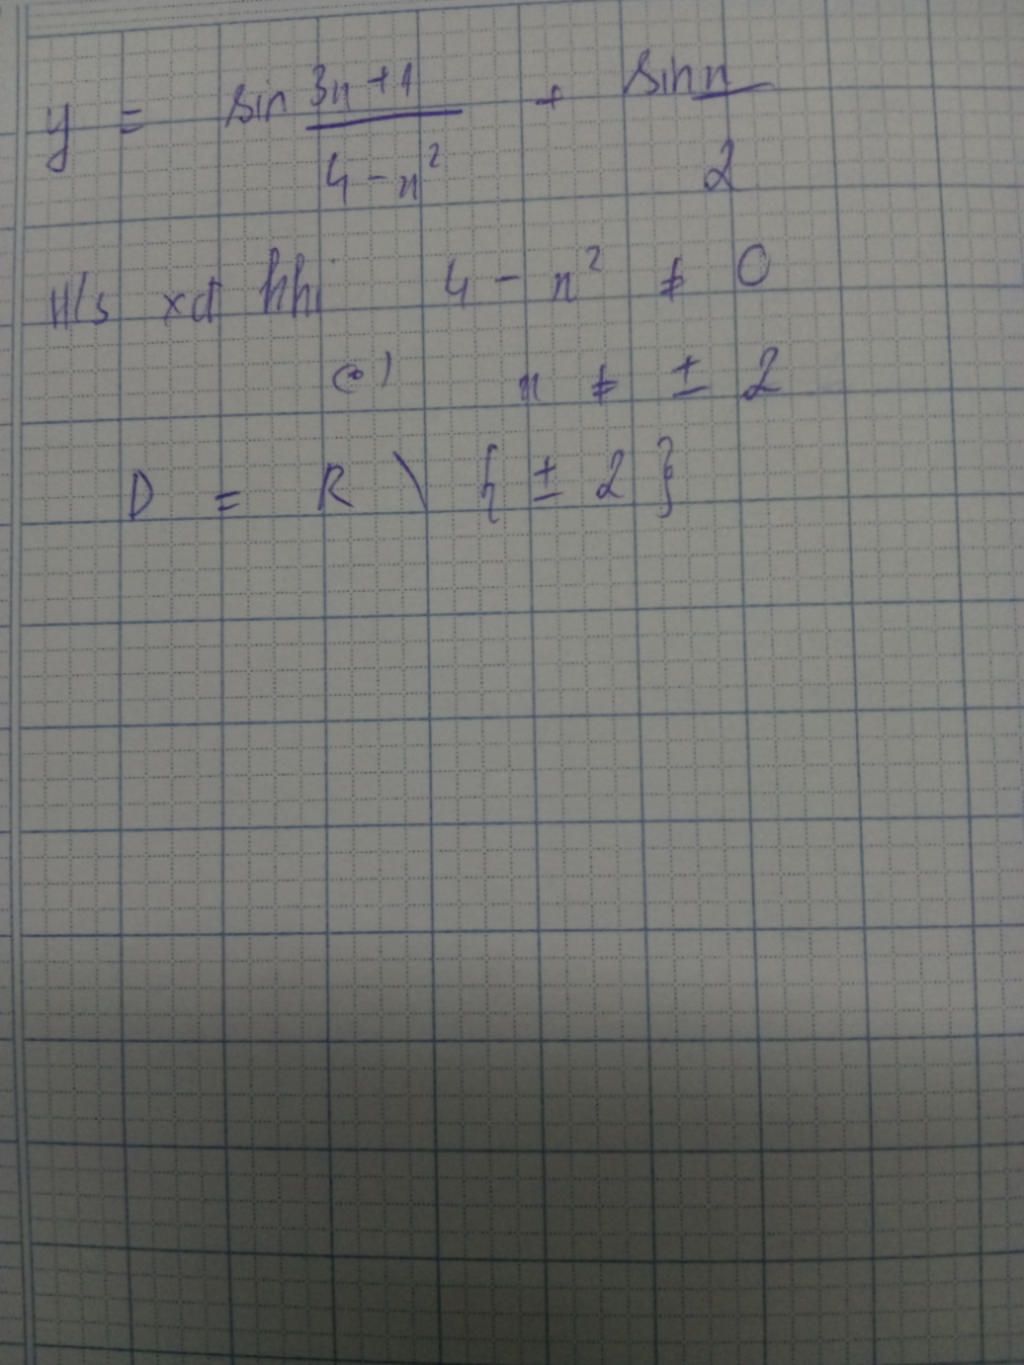 y = sin 3x + 1 / 4 - x² + sin x / 2
H/s xđ khi 4 - x² ≠ 0
(=) x ≠ ± 2
D = R \ { ± 2 }